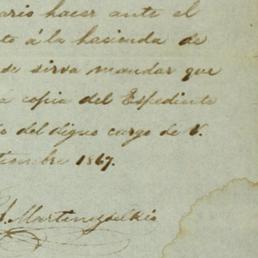 ario hacer ante el
to á la hacienda de
de sirva mandar que
a copia del Espediente
o del digno cargo de V.
tiembre 1867.
J. Martinez del Rio